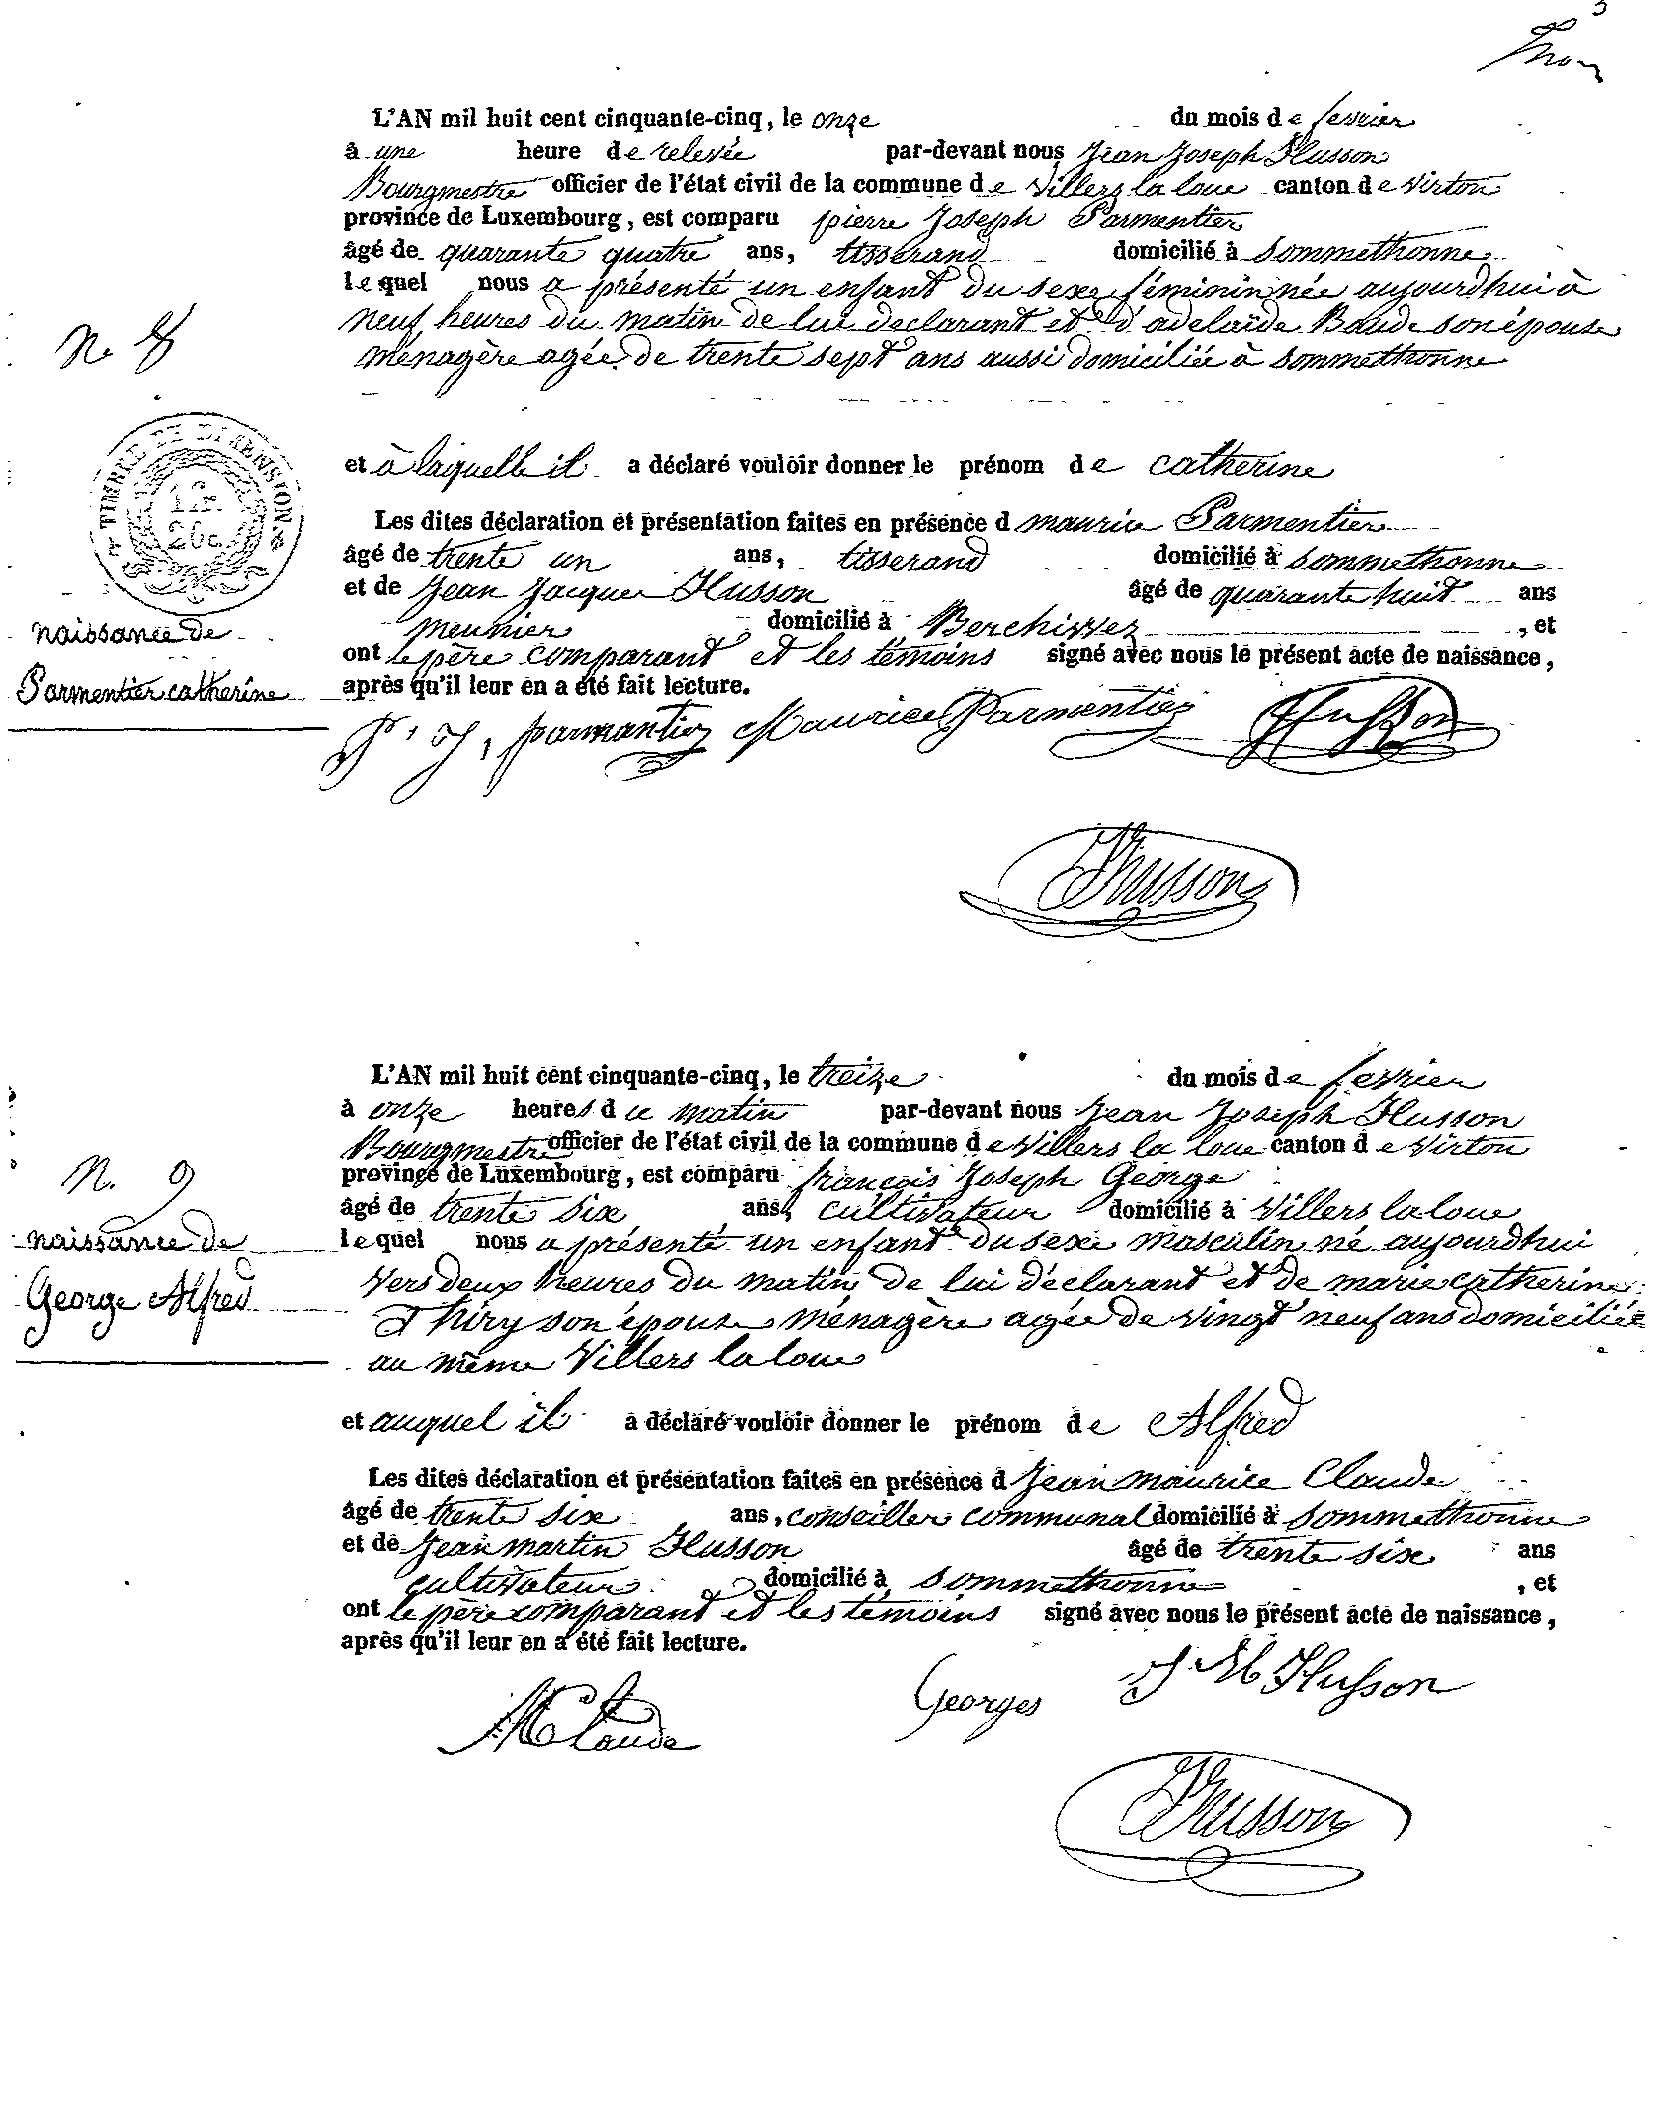 5
L'AN mil huit cent cinquante-cinq, le onze du mois de fevrier
à une heure de relevée par-devant nous Jean Joseph Husson
Bourgmestre officier de l'état civil de la commune de Villers la loue canton de Virton
province de Luxembourg, est comparu pierre Joseph Parmentier
âgé de quarante quatre ans, tisserand domicilié à Sommethonne
lequel nous a présenté un enfant du sexe féminin née aujourdhui à
neuf heures du matin de lui declarant et d'adelaïde Baude son épouse
ménagère agée de trente sept ans aussi domiciliée à sommethonne
N. 8
TIMBRE ET DIMENSION.
1 F.
20 c.
et à laquelle il a déclaré vouloir donner le prénom de catherine
Les dites déclaration et présentation faites en présence d maurice Parmentier
âgé de trente un ans, tisserand domicilié à sommethonne
et de Jean Jacques Husson âgé de quarante huit ans
meunier domicilié à Berchivvez , et
ont le père comparant et les témoins signé avec nous le présent acte de naissance,
après qu'il leur en a été fait lecture.
naissance de
Parmentier catherine
P. J, parmantier Maurice Parmentier Husson
Husson
L'AN mil huit cent cinquante-cinq, le treize du mois de fevrier
à onze heures du matin par-devant nous Jean Joseph Husson
Bourgmestre officier de l'état civil de la commune de Villers la loue canton de Virton
province de Luxembourg, est comparu françois Joseph George
âgé de trente six ans, cultivateur domicilié à Villers la loue
lequel nous a présenté un enfant du sexe masculin né aujourdhui
vers deux heures du matin de lui déclarant et de marie catherine
Thiry son épouse ménagère agée de vingt neuf ans domiciliée
au même Villers la loue
N. 9
naissance de
George Alfred
et auquel il a déclaré vouloir donner le prénom de Alfred
Les dites déclaration et présentation faites en présence d Jean maurice Claude
âgé de trente six ans, conseiller communal domicilié à sommethonne
et de Jean martin Husson âgé de trente six ans
cultivateur domicilié à sommethonne , et
ont le père comparant et les témoins signé avec nous le présent acte de naissance,
après qu'il leur en a été fait lecture.
JMClaude Georges J. M Husson
Husson